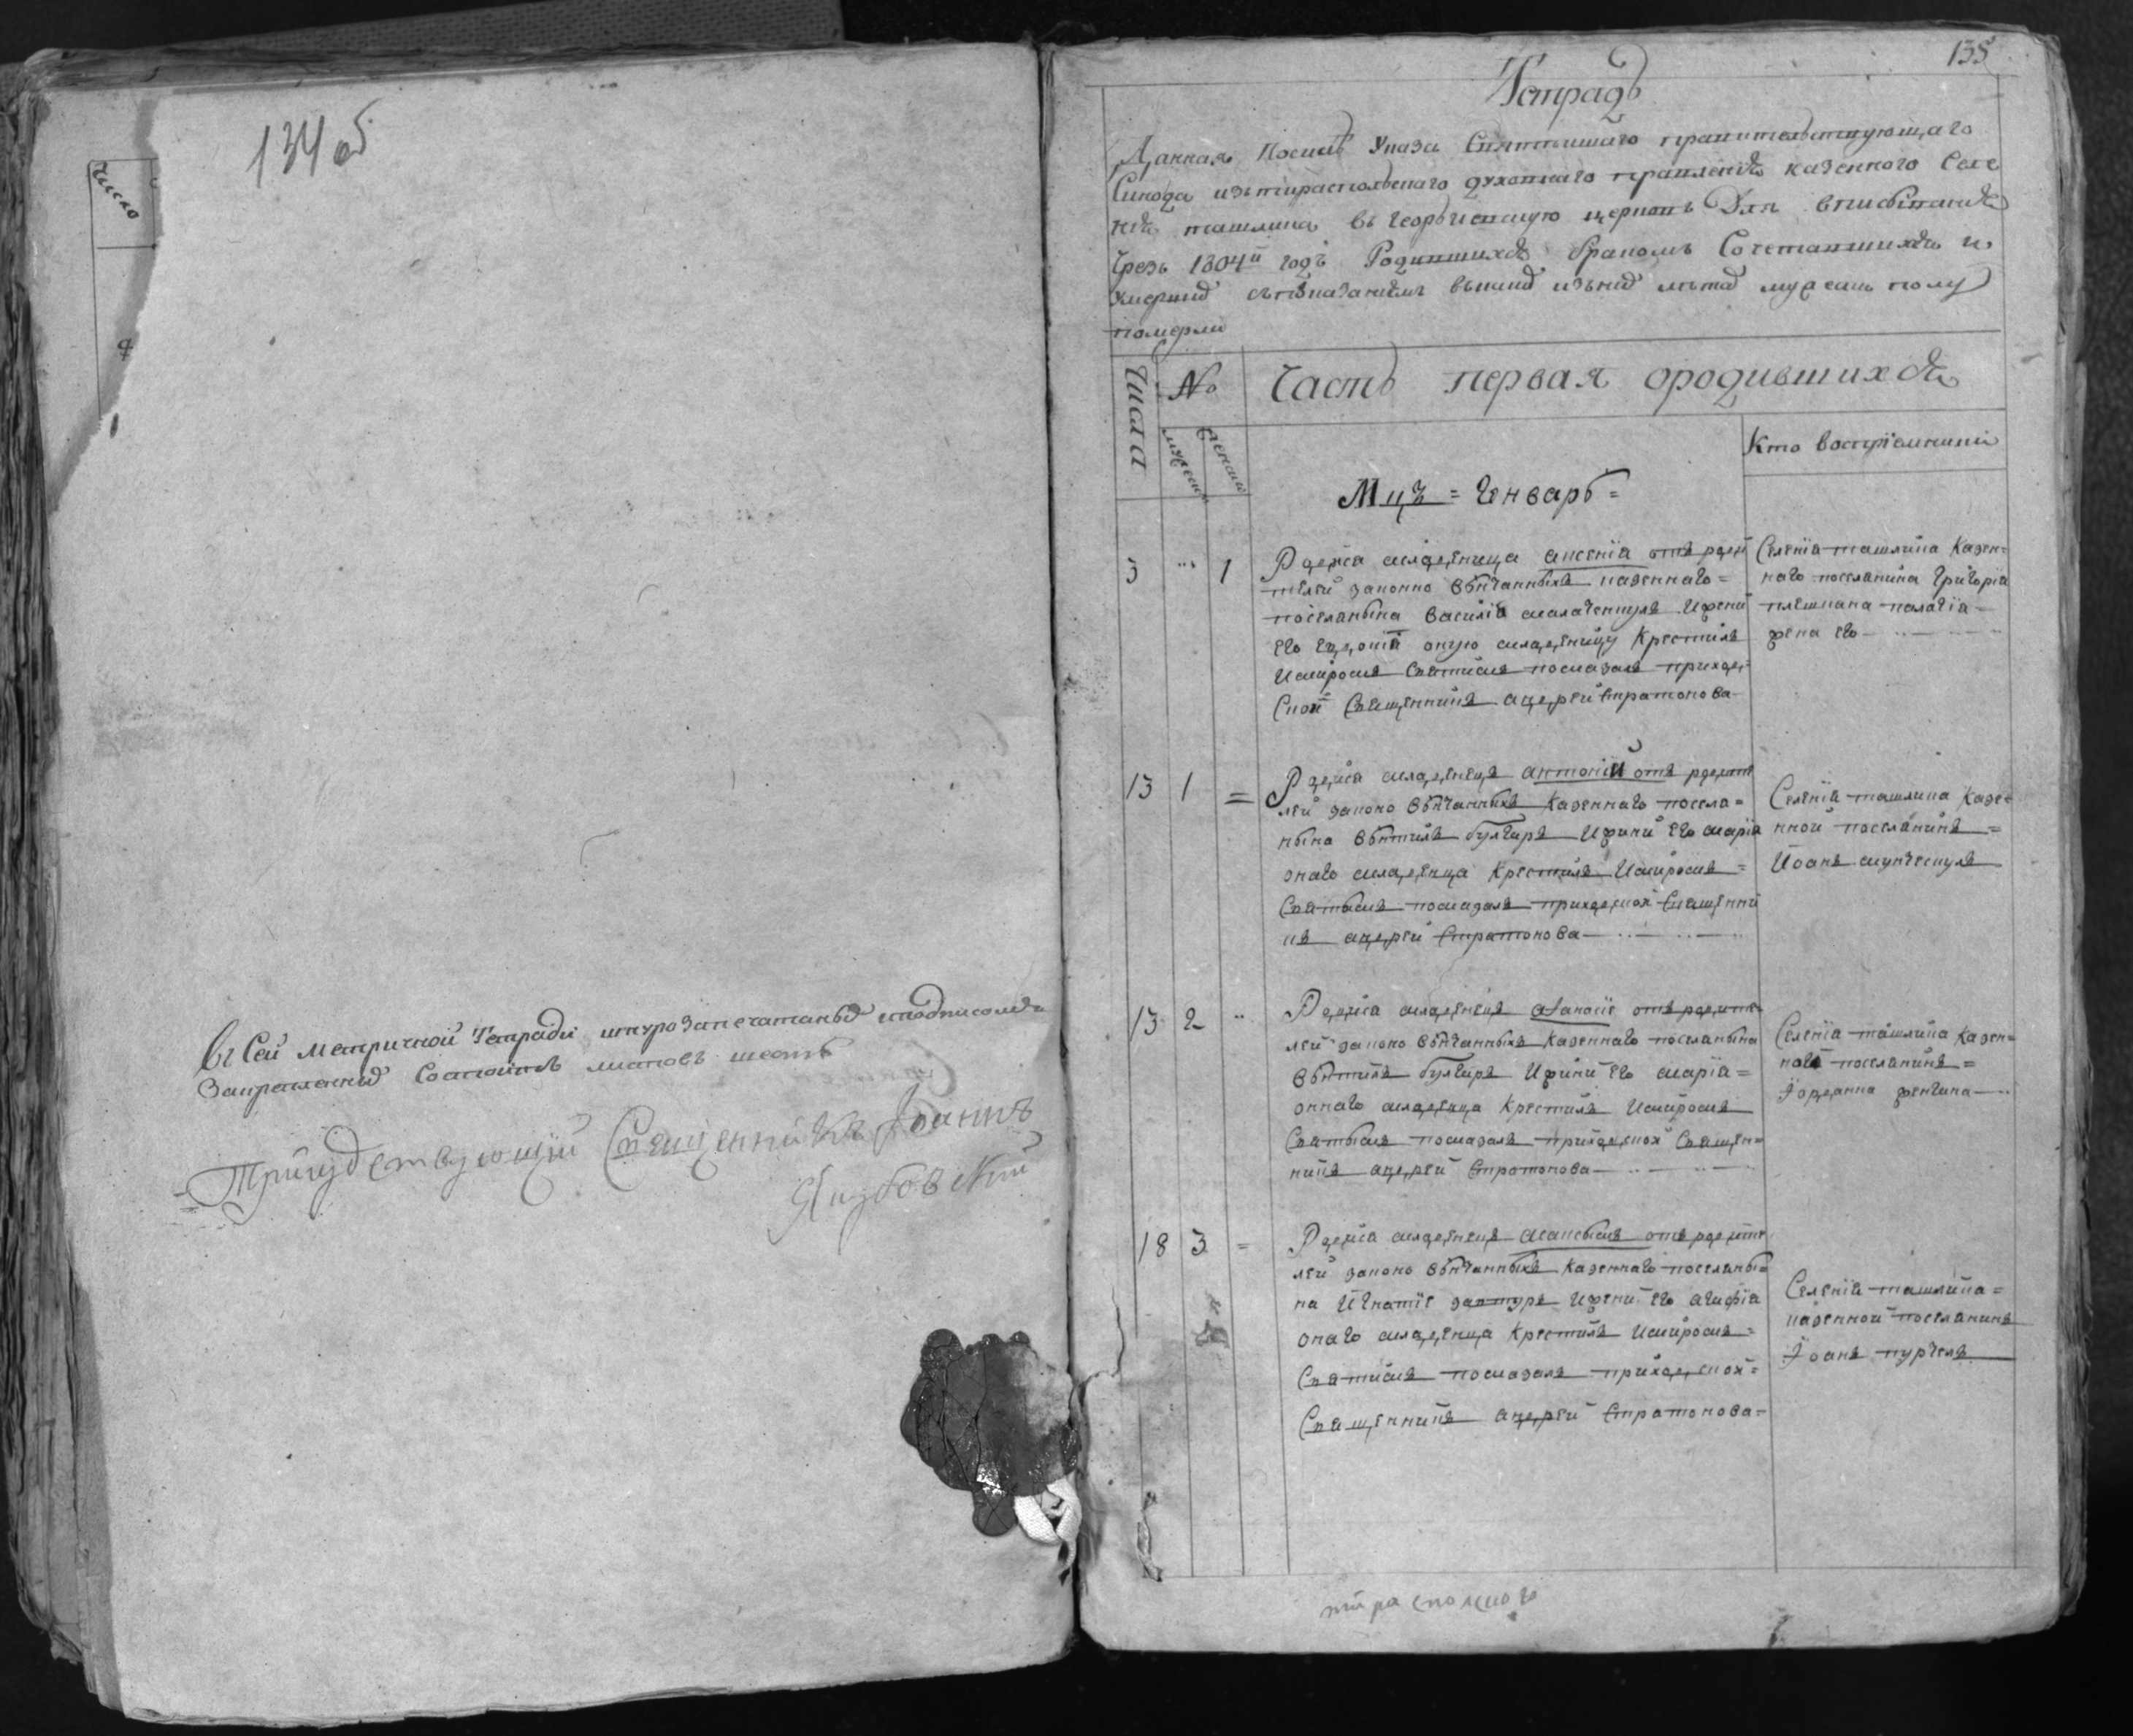 134 об
Число
Въ Сей метричной Тетради шнурозапечатаныхъ иподписомъ
Закрепленныхъ Состоитъ листовъ шесть
Присудствующий Священникъ Иоаннъ
Якубовский
135
Тетрадь
Данная Посиле Указа Святейшаго правительствующаго
Синода изъ тираспольскаго духовнаго правления казенного Селе
ния ташлика въ георгиевскую церковь Для вписывания
Чрезъ 1804й годъ Родившихся браком Сочетавшихся и
умершихъ
померли
Числа
№
Часть первая ородившихся
мужеска
женска
Кто восприемники
Мцъ = Генварь =
3 ... 1
Родися младеница ксения отъ роди
телей законно венчанныхъ казеннаго =
поселянына василия малаческула Ижени
его евдокии оную младеницу Крестилъ
Имиромъ Святимъ помазалъ приход
Ской Священникъ андрей Стратонова
Селения ташлика Казен=
наго поселянина григория
плешкана палагия
жена его
13 1 =
Родися младенецъ антоний отъ родите
лей законо венчанныхъ Казеннаго поселя=
нына булгаръ Ижини его мария
онаго младенца Крестилъ Имиромъ =
Святымъ помазалъ приходской Священни
къ андрей Стратонова
Селения ташлика Казе=
нной поселянинъ =
Иоанъ мунческулъ
13 2 ..
Родися младенецъ афанасие отъ родите
лей законо венчанныхъ Казеннаго поселянына
булгаръ Ижини его мария =
оннаго младенца Крестилъ Имиромъ
Святымъ помазалъ приходской Священ=
никъ андрей Стратонова
Селения ташлика Казен=
ной поселянинъ =
Иорданна
18 3 =
Родися младенецъ максымъ отъ родите
лей законо венчанныхъ Казеннаго поселяны=
на Игнатие Ижени его агафия
онаго младенца Крестилъ Имиромъ =
Святимъ помазалъ приходской =
Священникъ андрей Стратонова =
Селения ташлика =
казенной поселянинъ
Иоанъ пурчелъ
тираспольского